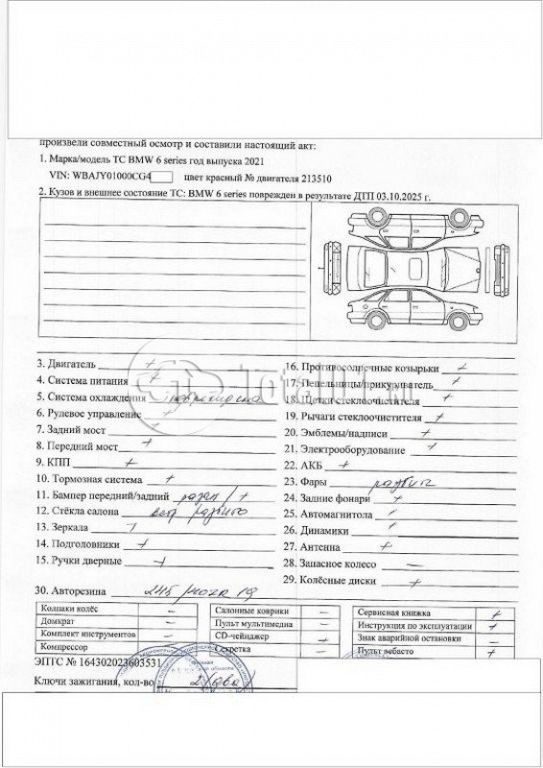 произвели совместный осмотр и составили настоящий акт:
1. Марка/модель ТС BMW 6 series год выпуска 2021
VIN: WBAJY01000CG4 цвет красный № двигателя 213510
2. Кузов и внешнее состояние ТС: BMW 6 series поврежден в результате ДТП 03.10.2025 г.
3. Двигатель +
4. Система питания +
5. Система охлаждения повреждена
6. Рулевое управление +
7. Задний мост +
8. Передний мост +
9. КПП +
10. Тормозная система +
11. Бампер передний/задний разбит / +
12. Стёкла салона разбито
13. Зеркала
14. Подголовники +
15. Ручки дверные +
16. Противосолнечные козырьки +
17. Пепельницы/прикуриватель +
18. Щетки стеклоочистителя
19. Рычаги стеклоочистителя +
20. Эмблемы/надписи
21. Электрооборудование
22. АКБ +
23. Фары разбиты
24. Задние фонари +
25. Автомагнитола
26. Динамики
27. Антенна +
28. Запасное колесо –
29. Колёсные диски +
30. Авторезина 19
Колпаки колёс –
Домкрат –
Комплект инструментов –
Компрессор
Салонные коврики –
Пульт мультимедиа –
CD-чейнджер +
Секретка –
Сервисная книжка +
Инструкция по эксплуатации +
Знак аварийной остановки –
Пульт вебасто +
ЭПТС № 164302023603531
Ключи зажигания, кол-во 2 (два)